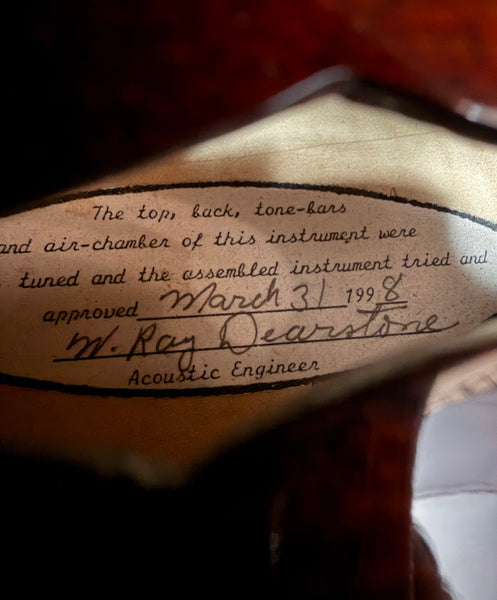 The top, back, tone-bars
and air-chamber of this instrument were
tuned and the assembled instrument tried and
approved March 31 1998
W. Ray Dearstone
Acoustic Engineer